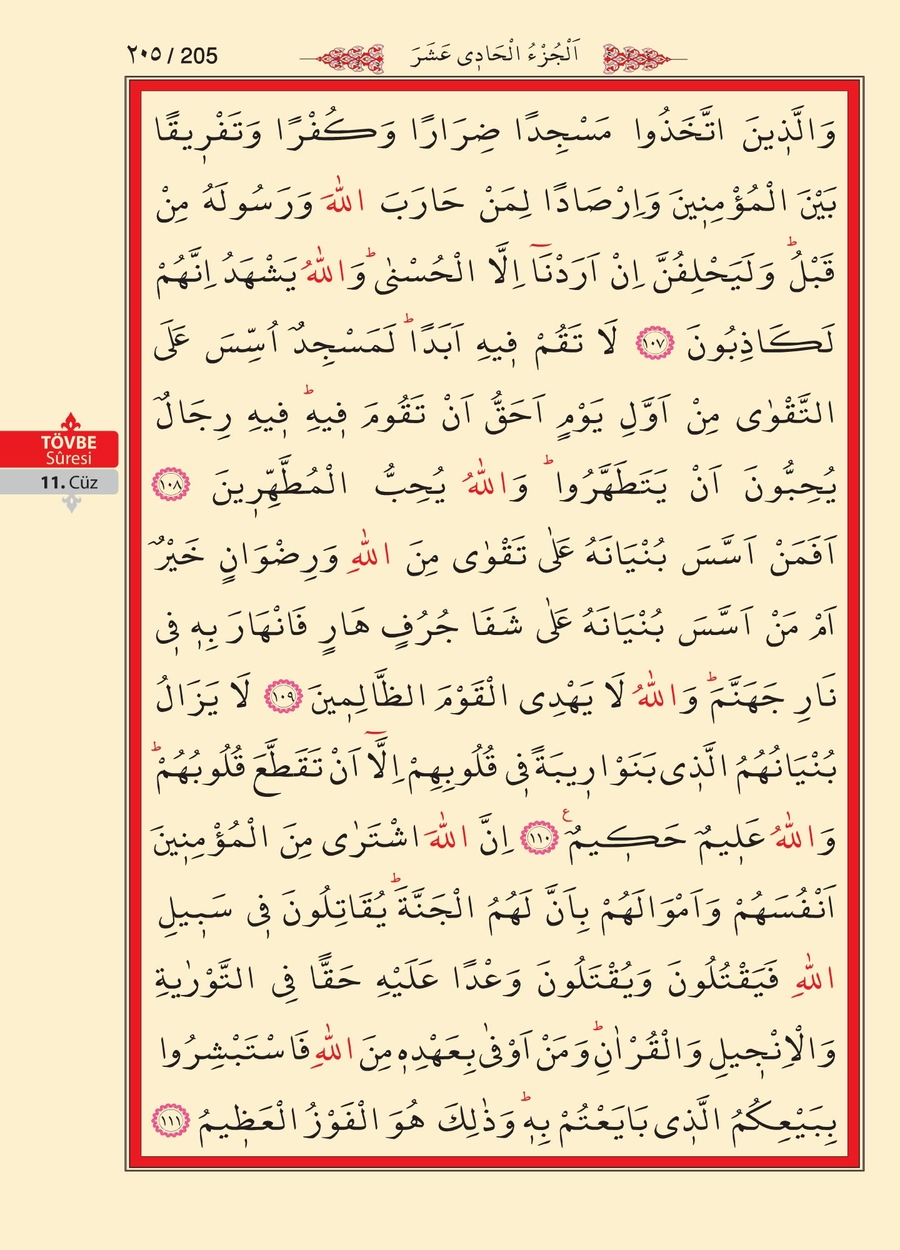 ٢٠٥ / 205
اَلْجُزْءُ الْحَادِى عَشَرَ
وَالَّذِينَ اتَّخَذُوا مَسْجِدًا ضِرَارًا وَكُفْرًا وَتَفْرِيقًا
بَيْنَ الْمُؤْمِنِينَ وَاِرْصَادًا لِمَنْ حَارَبَ اللّٰهَ وَرَسُولَهُ مِنْ
قَبْلُۜ وَلَيَحْلِفُنَّ اِنْ اَرَدْنَٓا اِلَّا الْحُسْنٰىۜ وَاللّٰهُ يَشْهَدُ اِنَّهُمْ
لَكَاذِبُونَ ﴿١٠٧﴾ لَا تَقُمْ فِيهِ اَبَدًاۜ لَمَسْجِدٌ اُسِّسَ عَلَى
التَّقْوٰى مِنْ اَوَّلِ يَوْمٍ اَحَقُّ اَنْ تَقُومَ فِيهِۜ فِيهِ رِجَالٌ
يُحِبُّونَ اَنْ يَتَطَهَّرُواۜ وَاللّٰهُ يُحِبُّ الْمُطَّهِّرِينَ ﴿١٠٨﴾
اَفَمَنْ اَسَّسَ بُنْيَانَهُ عَلٰى تَقْوٰى مِنَ اللّٰهِ وَرِضْوَانٍ خَيْرٌ
اَمْ مَنْ اَسَّسَ بُنْيَانَهُ عَلٰى شَفَا جُرُفٍ هَارٍ فَانْهَارَ بِهٖ فِى
نَارِ جَهَنَّمَۜ وَاللّٰهُ لَا يَهْدِى الْقَوْمَ الظَّالِمِينَ ﴿١٠٩﴾ لَا يَزَالُ
بُنْيَانُهُمُ الَّذِى بَنَوْا رِيبَةً فِى قُلُوبِهِمْ اِلَّٓا اَنْ تَقَطَّعَ قُلُوبُهُمْۜ
وَاللّٰهُ عَلِيمٌ حَكِيمٌ ﴿١١٠﴾ ع اِنَّ اللّٰهَ اشْتَرٰى مِنَ الْمُؤْمِنِينَ
اَنْفُسَهُمْ وَاَمْوَالَهُمْ بِاَنَّ لَهُمُ الْجَنَّةَۜ يُقَاتِلُونَ فِى سَبِيلِ
اللّٰهِ فَيَقْتُلُونَ وَيُقْتَلُونَ وَعْدًا عَلَيْهِ حَقًّا فِى التَّوْرٰيةِ
وَالْاِنْجِيلِ وَالْقُرْاٰنِۜ وَمَنْ اَوْفٰى بِعَهْدِهٖ مِنَ اللّٰهِ فَاسْتَبْشِرُوا
بِبَيْعِكُمُ الَّذِى بَايَعْتُمْ بِهٖۜ وَذٰلِكَ هُوَ الْفَوْزُ الْعَظِيمُ ﴿١١١﴾
TÖVBE
Sûresi
11. Cüz